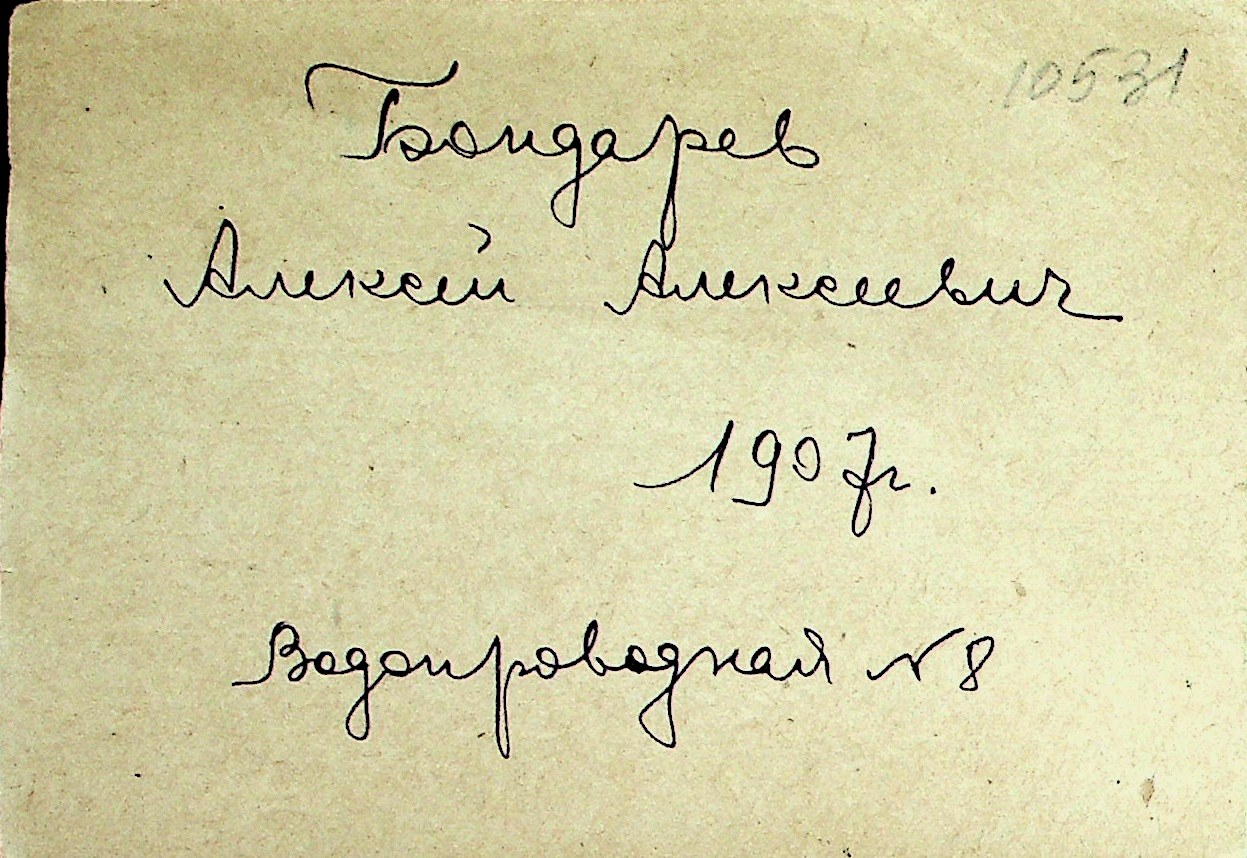 10531
Бондарев
Алексей Алексеевич
1907г.
Водопроводная N 8